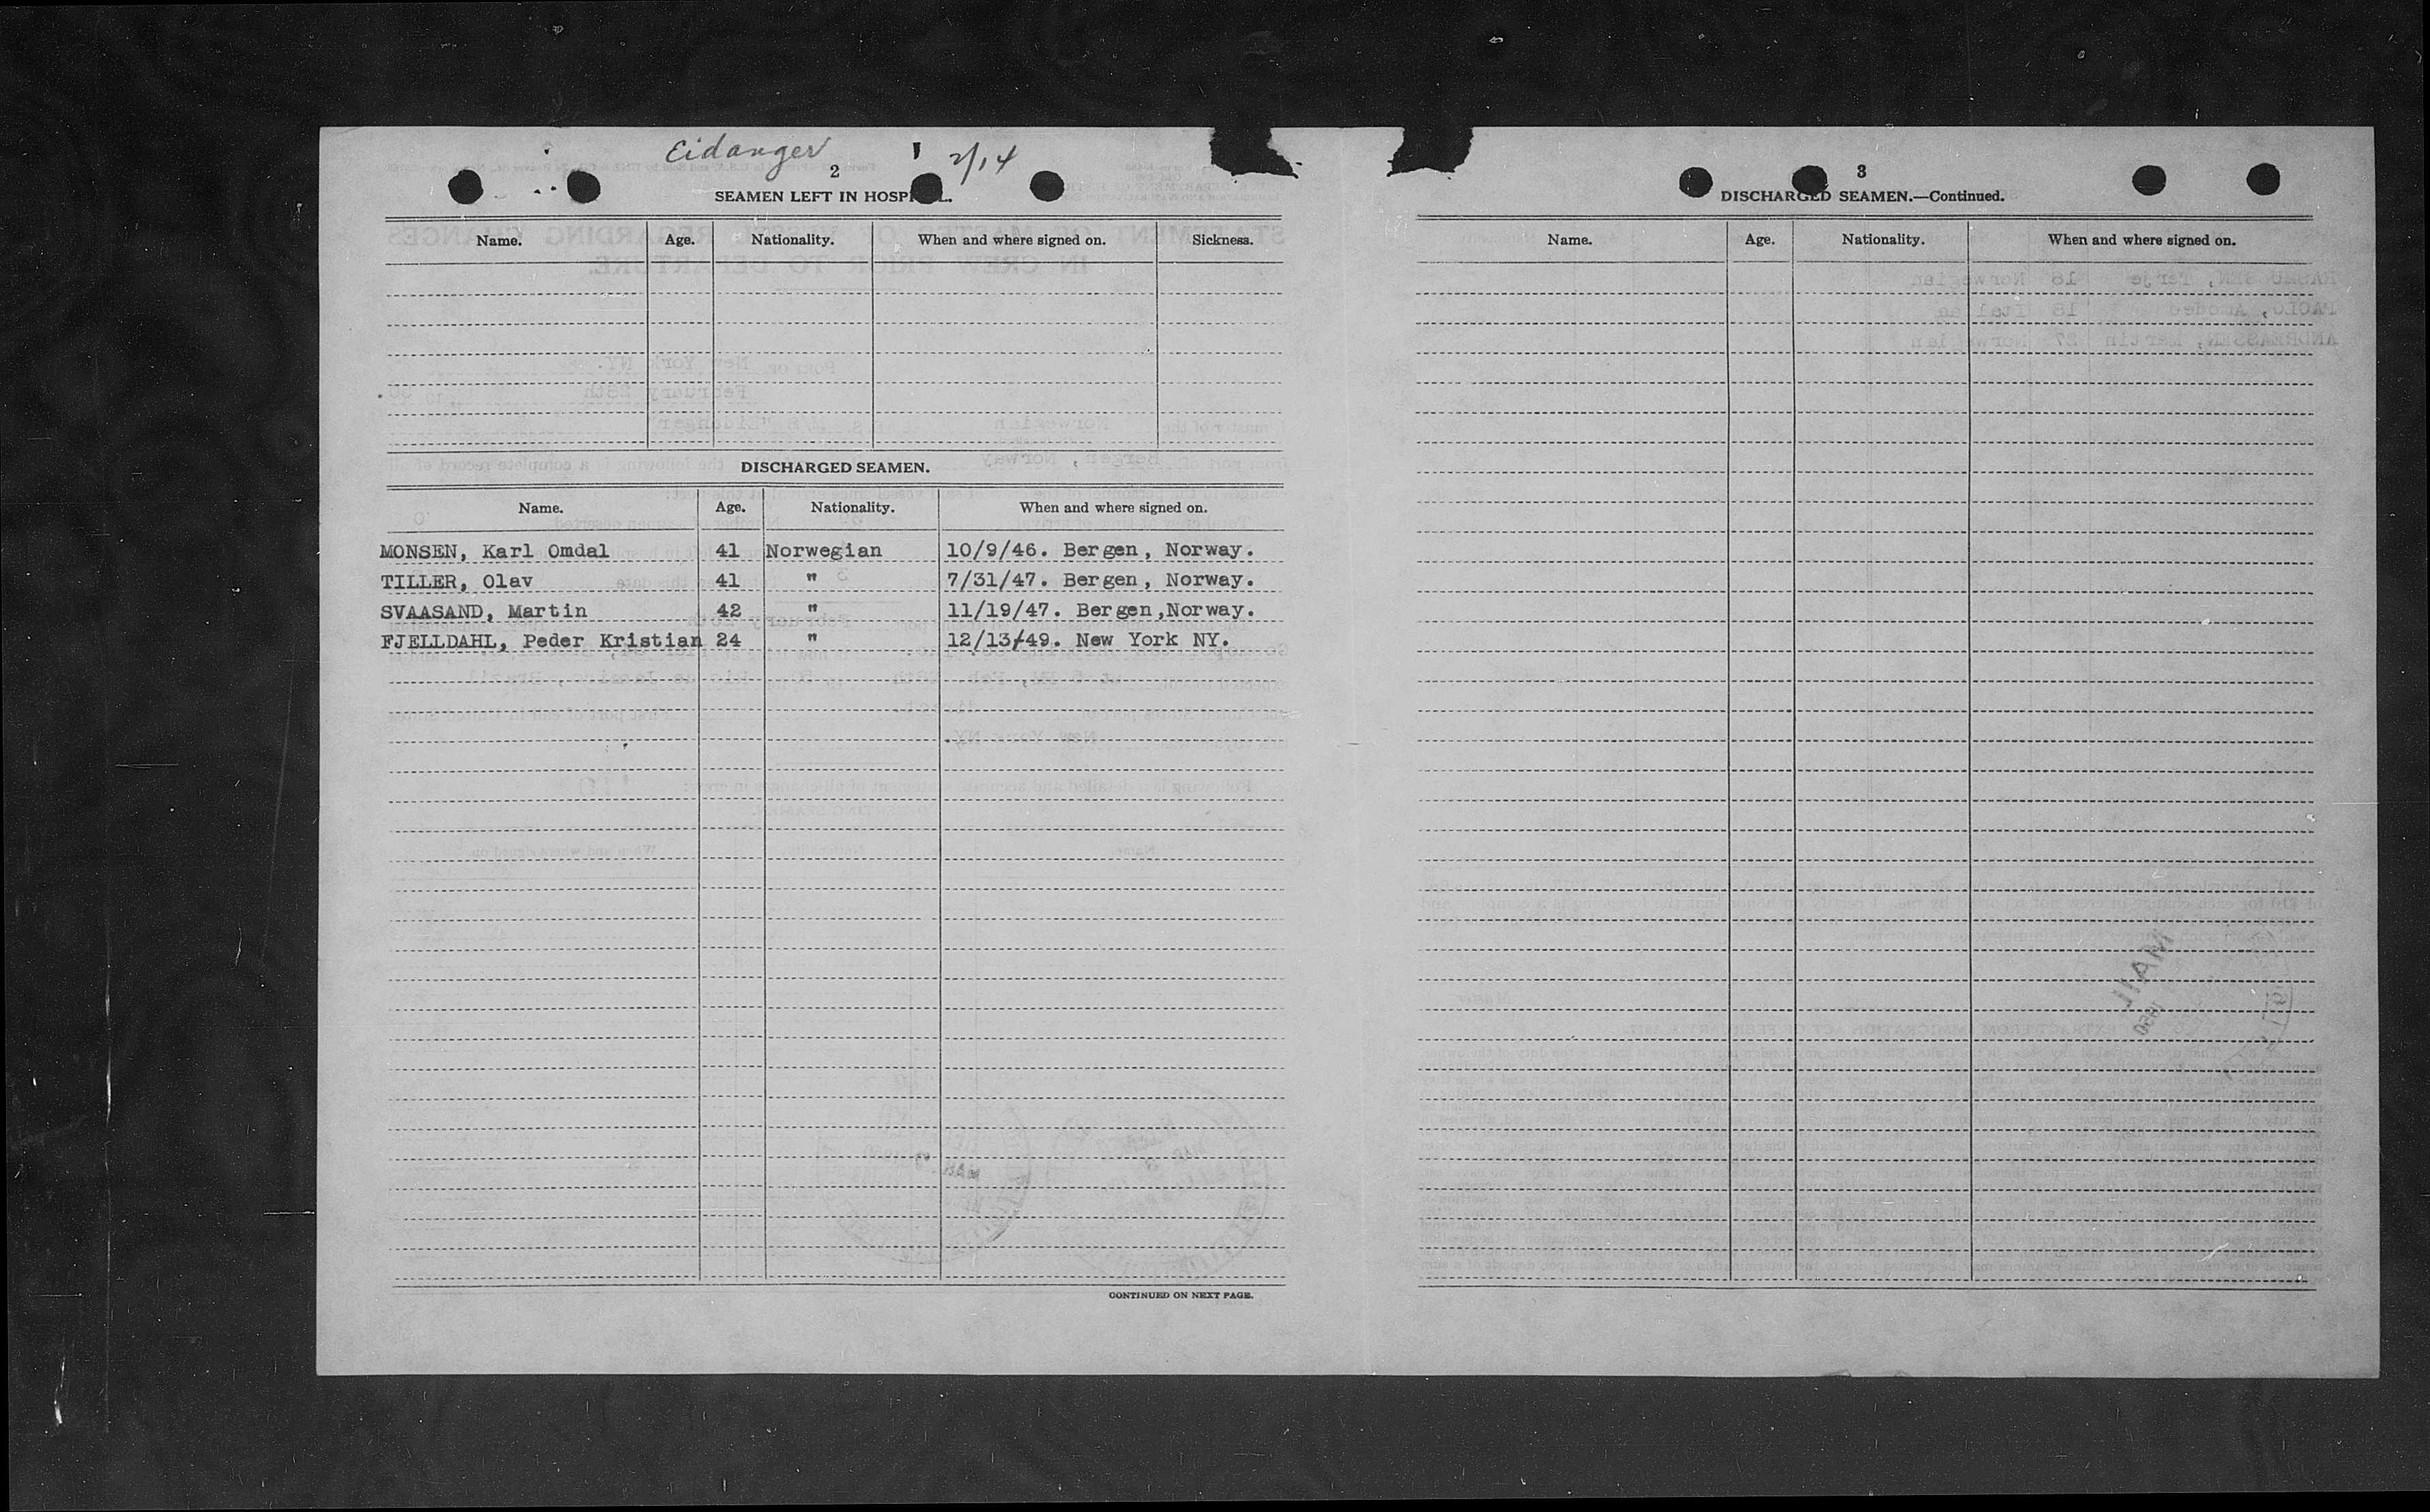 Eidanger 2/14
2
SEAMEN LEFT IN HOSPITAL.
Name. Age. Nationality. When and where signed on. Sickness.
DISCHARGED SEAMEN.
Name. Age. Nationality. When and where signed on.
MONSEN, Karl Omdal 41 Norwegian 10/9/46. Bergen, Norway.
TILLER, Olav 41 " 7/31/47. Bergen, Norway.
SVAASAND, Martin 42 " 11/19/47. Bergen,Norway.
FJELLDAHL, Peder Kristian 24 " 12/13/49. New York NY.
CONTINUED ON NEXT PAGE.
3
DISCHARGED SEAMEN.—Continued.
Name. Age. Nationality. When and where signed on.